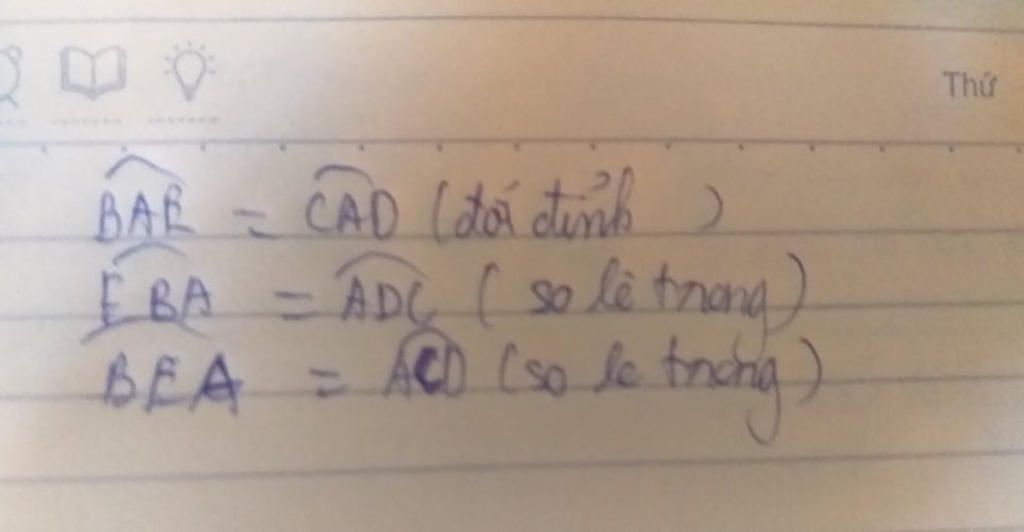 Thứ
BAE = CAD (đối đỉnh )
EBA = ADC ( so le trong)
BEA = ACD (so le trong)